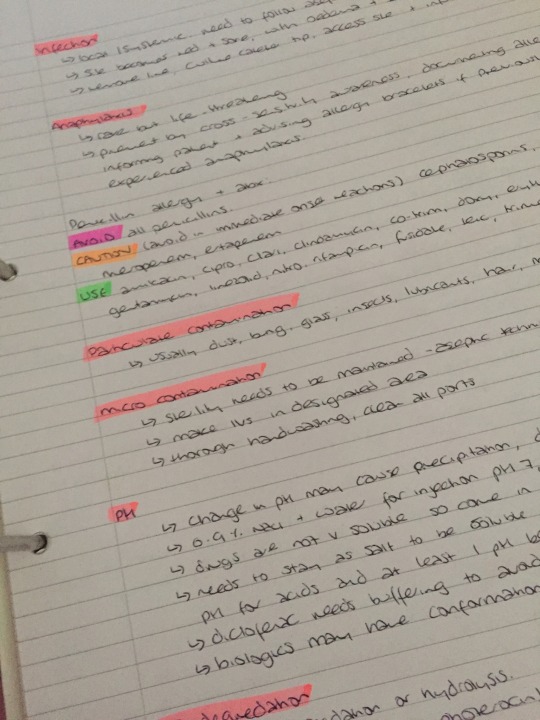 Infection
↳ local / systemic, need to follow asep
↳ site becomes red + sore, with oedema +
↳ remove line, culture catheter tip, access site +
Anaphylaxis
↳ rare but life-threatening
↳ prevent by cross-sensitivity awareness, documenting alle
informing patient + advising allergy bracelets if previous
experienced anaphylaxis.
Penicillin allergy + abx:
AVOID all penicillins.
CAUTION (avoid in immediate onset reactions) cephalosporins,
meropenem, ertapenem
USE amikacin, cipro, clari, clindamycin, co-trim, doxy, eryth
gentamicin, linezolid, nitro, rifampicin, fusidate, teic, trime
Particulate contamination
↳ usually dust, bung, glass, insects, lubricants, hair, m
micro contamination
↳ sterility needs to be maintained - aseptic techn
↳ make IVs in designated area
↳ thorough handwashing, clean all ports
pH
↳ change in pH may cause precipitation, d
↳ 0.9% NaCl + water for injection pH 7,
↳ drugs are not v soluble so come in
↳ needs to stay as salt to be soluble
pH for acids and at least 1 pH be
↳ diclofenac needs buffering to avoid
↳ biologics may have conformation
degradation
dation or hydrolysis.